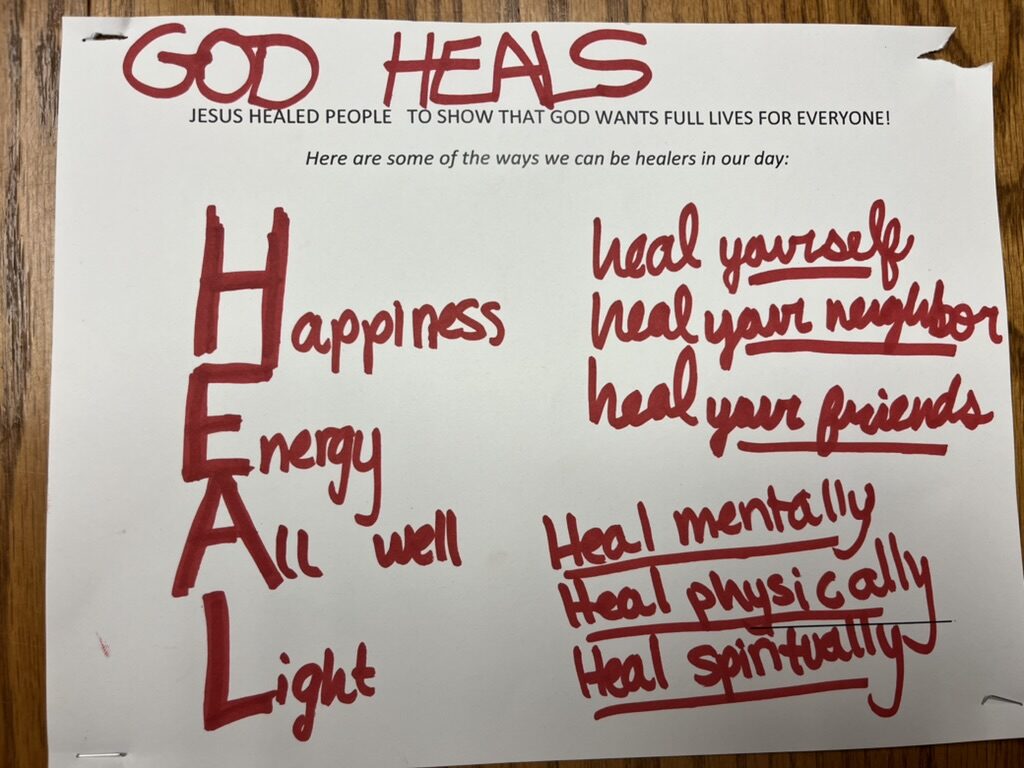 GOD HEALS
JESUS HEALED PEOPLE TO SHOW THAT GOD WANTS FULL LIVES FOR EVERYONE!
Here are some of the ways we can be healers in our day:
Happiness
Energy
All well
Light
heal yourself
heal your neighbor
heal your friends
Heal mentally
Heal physically
Heal spiritually